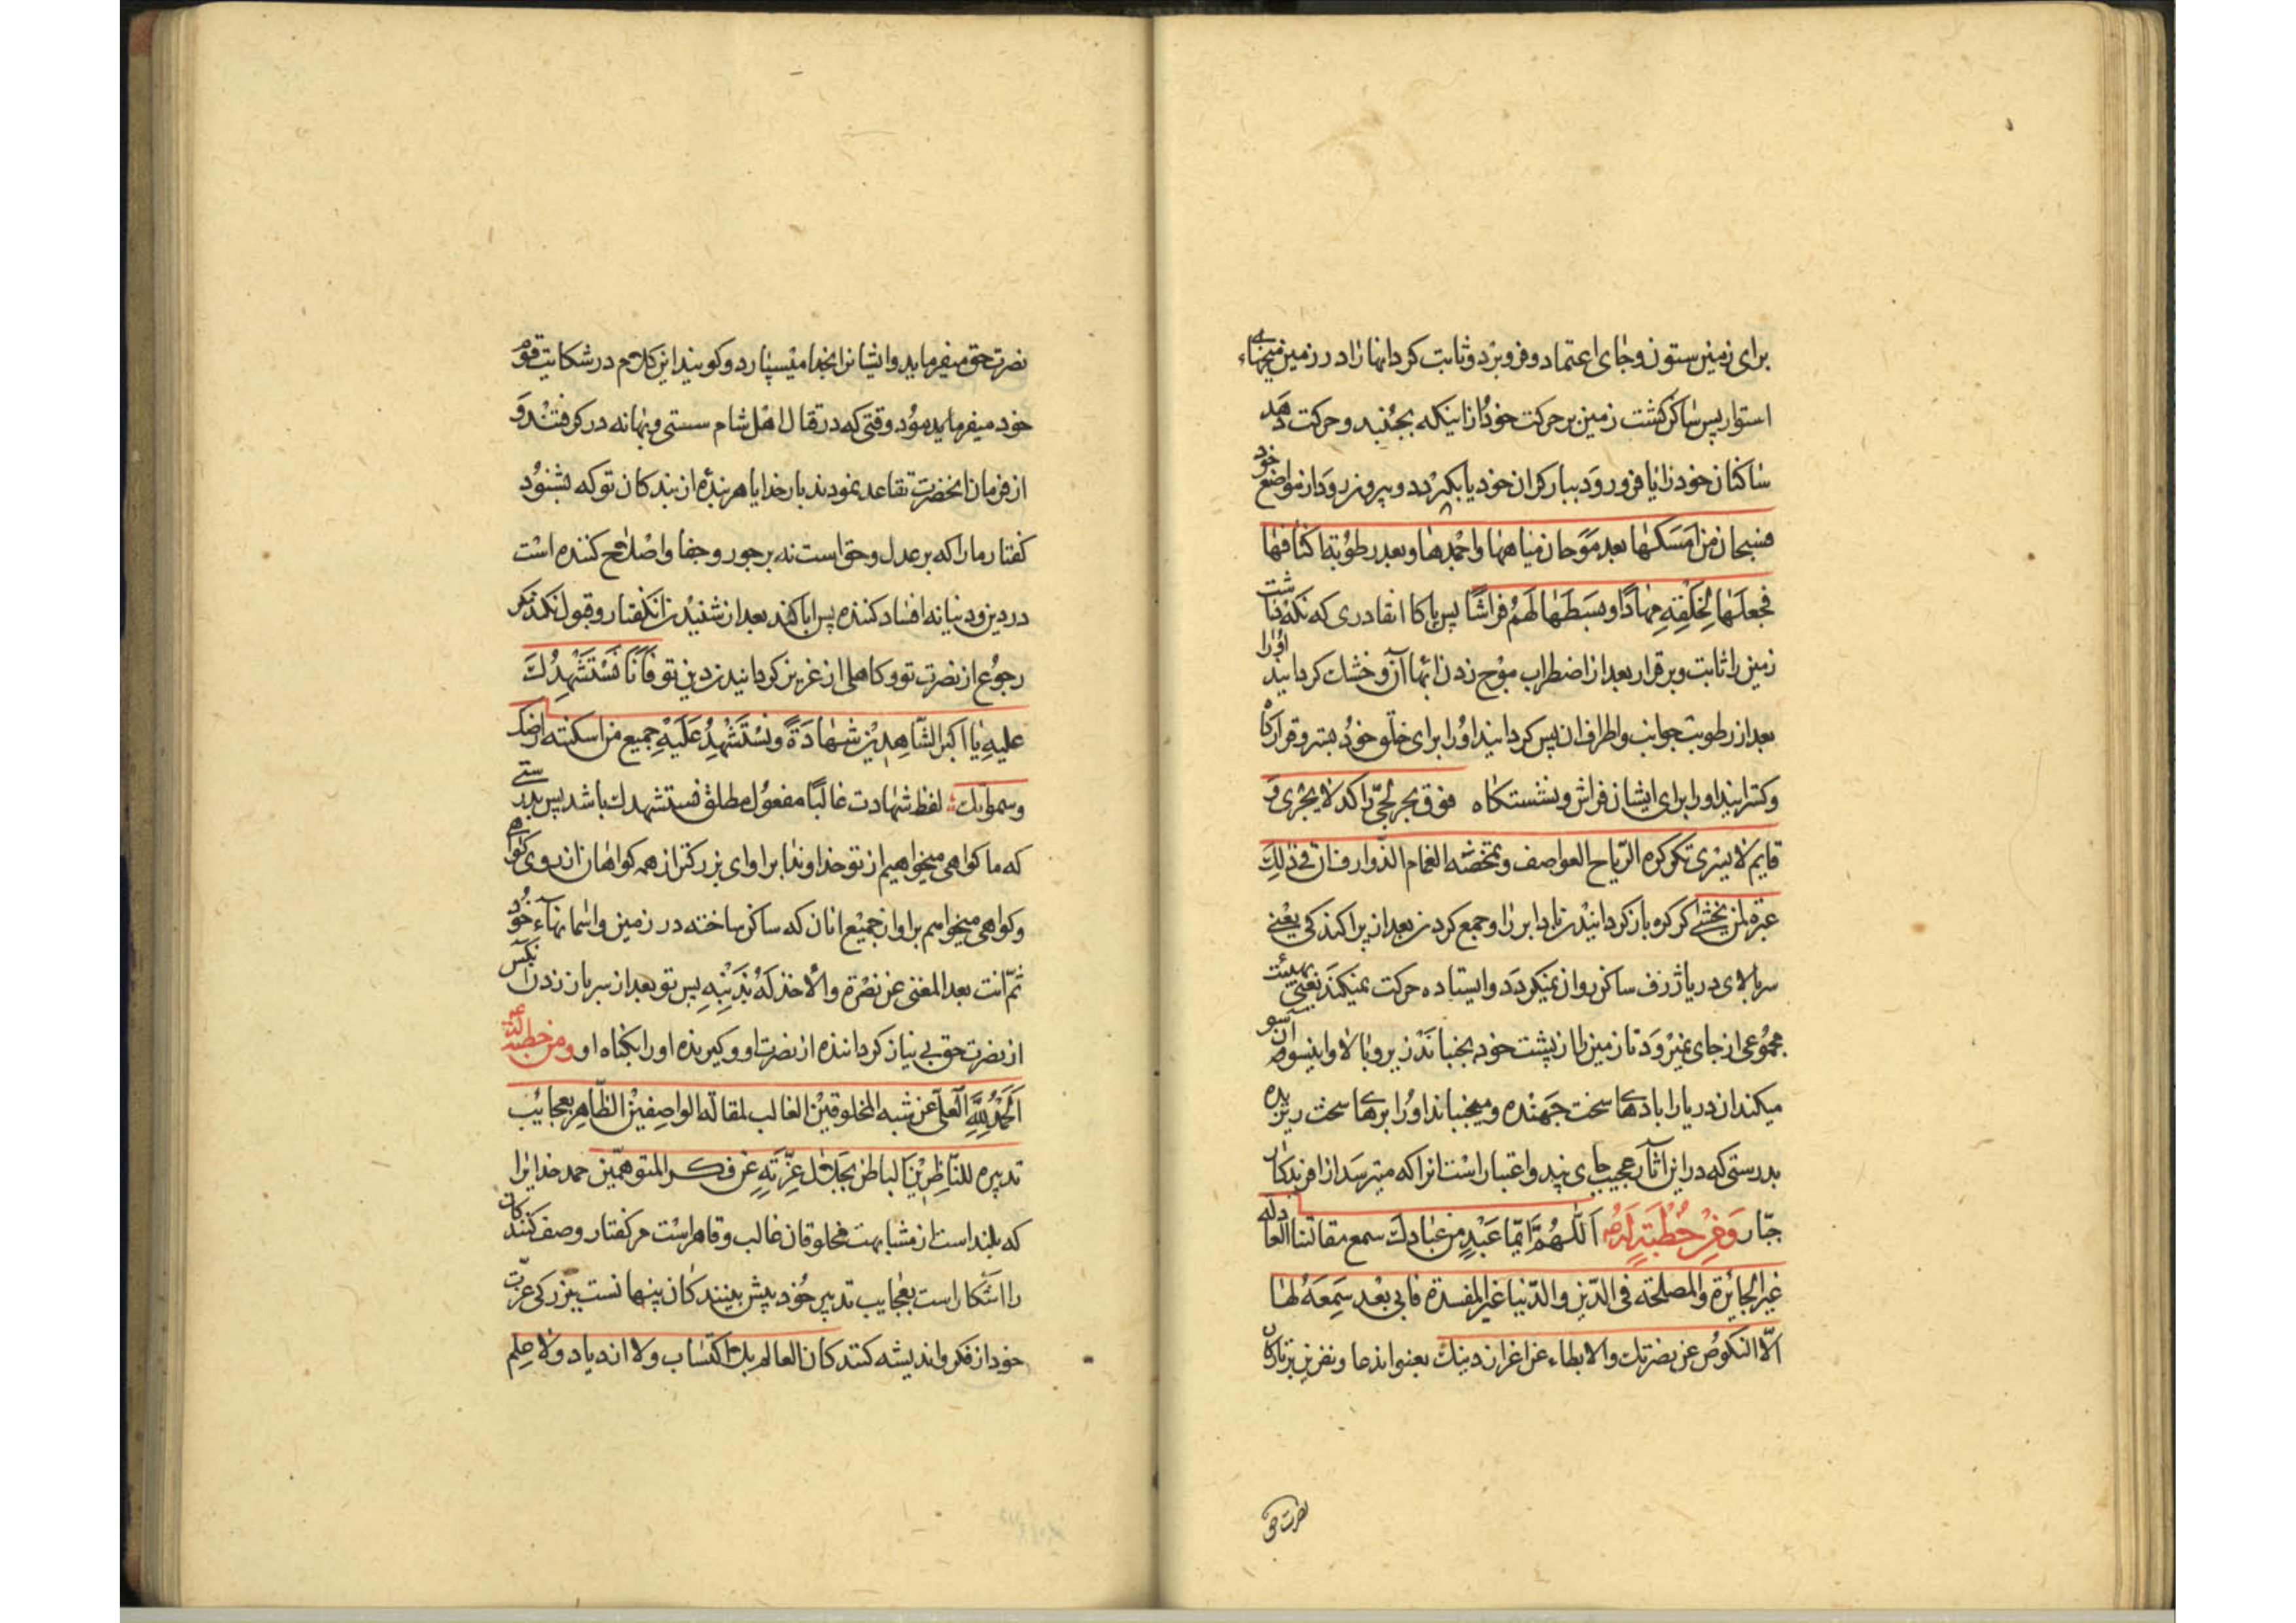 برای زمین ستون و جای اعتماد و فرو برد و ثابت کرد انها را در زمین میخهای
استوار پس ساکن گشت زمین بر حرکت خود از اینکه بجنبد و حرکت دهد
ساکنان خود را یا فرو رود ببار کران خود یا بگردد و بیرون رود از مواضع خود
فسبحان من امسکها بعد موجان میاهها واجمدها بعد رطوبة اکنافها
فجعلها لخلقه مهادا وبسطها لهم فراشا پس پاکا انقادری که نکه داشت
زمین را ثابت و برقرار بعد از اضطراب موج زدن ابهاآن و خشک کردانید اورا
بعد از رطوبت جوانب و اطراف ان پس کردانید اورا برای خلق خود بستر و قرارکاه
و کسترانید اورا برای ایشان فراش و نشستکاه فوق بحر لجی راکد لا یجری و
قایم لا یسری تکرکره الریاح العواصف وتمخضه الغمام الذوارف ان فی ذلک
عبرة لمن یخشی کرکره باز کردانیدن باد ابر را و جمع کردن بعد از پراکندکی یعنی
سر بالای دریا ژرف ساکن روان نمیکردد و ایستاده حرکت نمیکند یعنی بهیئت
مجموعی از جای نمیرود تا زمین را از پشت خود بجنباند زیر و بالا و اینسو و آن سو
میکند ان دریا را بادهای سخت جهنده و میجنباند اورا ابرهای سخت ریزنده
بدرستی که در این اثار عجیب جای پند و اعتبار است انرا که میترسد از افریدکار
جبار ومن خطبة له اللهم ایما عبد من عبادک سمع مقالتنا العادلة
غیر الجائرة والمصلحة فی الدین والدنیا غیر المفسدة فابی بعد سمعه لها
الا النکوص عن نصرتک والابطاء عن اعزاز دینک یعنی این دعا و نفرین بر تارکان
نصرت حق
نصرت حق میفرماید و ایشانرا بخدا میسپارد و کویند این کلام در شکایت قوم
خود میفرمایند وقتی که در قتال اهل شام سستی و بهانه در کرفتند و
از فرمان انحضرت تقاعد نمودند بار خدایا هر بنده از بندکان تو که بشنود
کفتار ما را که بر عدل و حق است نه بر جور و جفا و اصلاح کننده است
در دین و دنیا نه افساد کننده پس ابا کند بعد از شنیدن انکفتار و قبول نکند مکر
رجوع از نصرت تو و کاهلی از عزیز کردانیدن دین تو فانا نستشهدک
علیه یا اکبر الشاهدین شهادة ونستشهد علیه جمیع من اسکنته ارضک
وسمواتک لفظ شهادت غالبا مفعول مطلق نستشهدک باشد پس بدرستی
که ما کواهی میخواهیم از تو خداوندا بر او ای بزرکتر از همه کواهان از روی کواهی
و کواهی میخواهیم بر او از جمیع انان که ساکن ساخته در زمین و اسمانهاء خود
ثم انت بعد المغنی عن نصره والاخذ له بذنبه پس تو بعد از سر باز زدن انکس
از نصرت حق بی نیاز کرداننده از نصرت او و کیرنده اورا بکناه او ومن خطبة له
الحمد لله العلی عن شبه المخلوقین الغالب لمقالة الواصفین الظاهر بعجایب
تدبیره للناظرین الباطن بجلال عزته عن فکر المتوهمین حمد خدایرا
که بلند است از مشابهت مخلوقان غالب و قاهر است مر کفتار وصف کنندکان
را اشکار است بعجایب تدبیر خود پیش بینندکان پنهانست ببزرکی عزت
خود از فکر و اندیشه کنندکان العالم بلا اکتساب ولا ازدیاد ولا علم